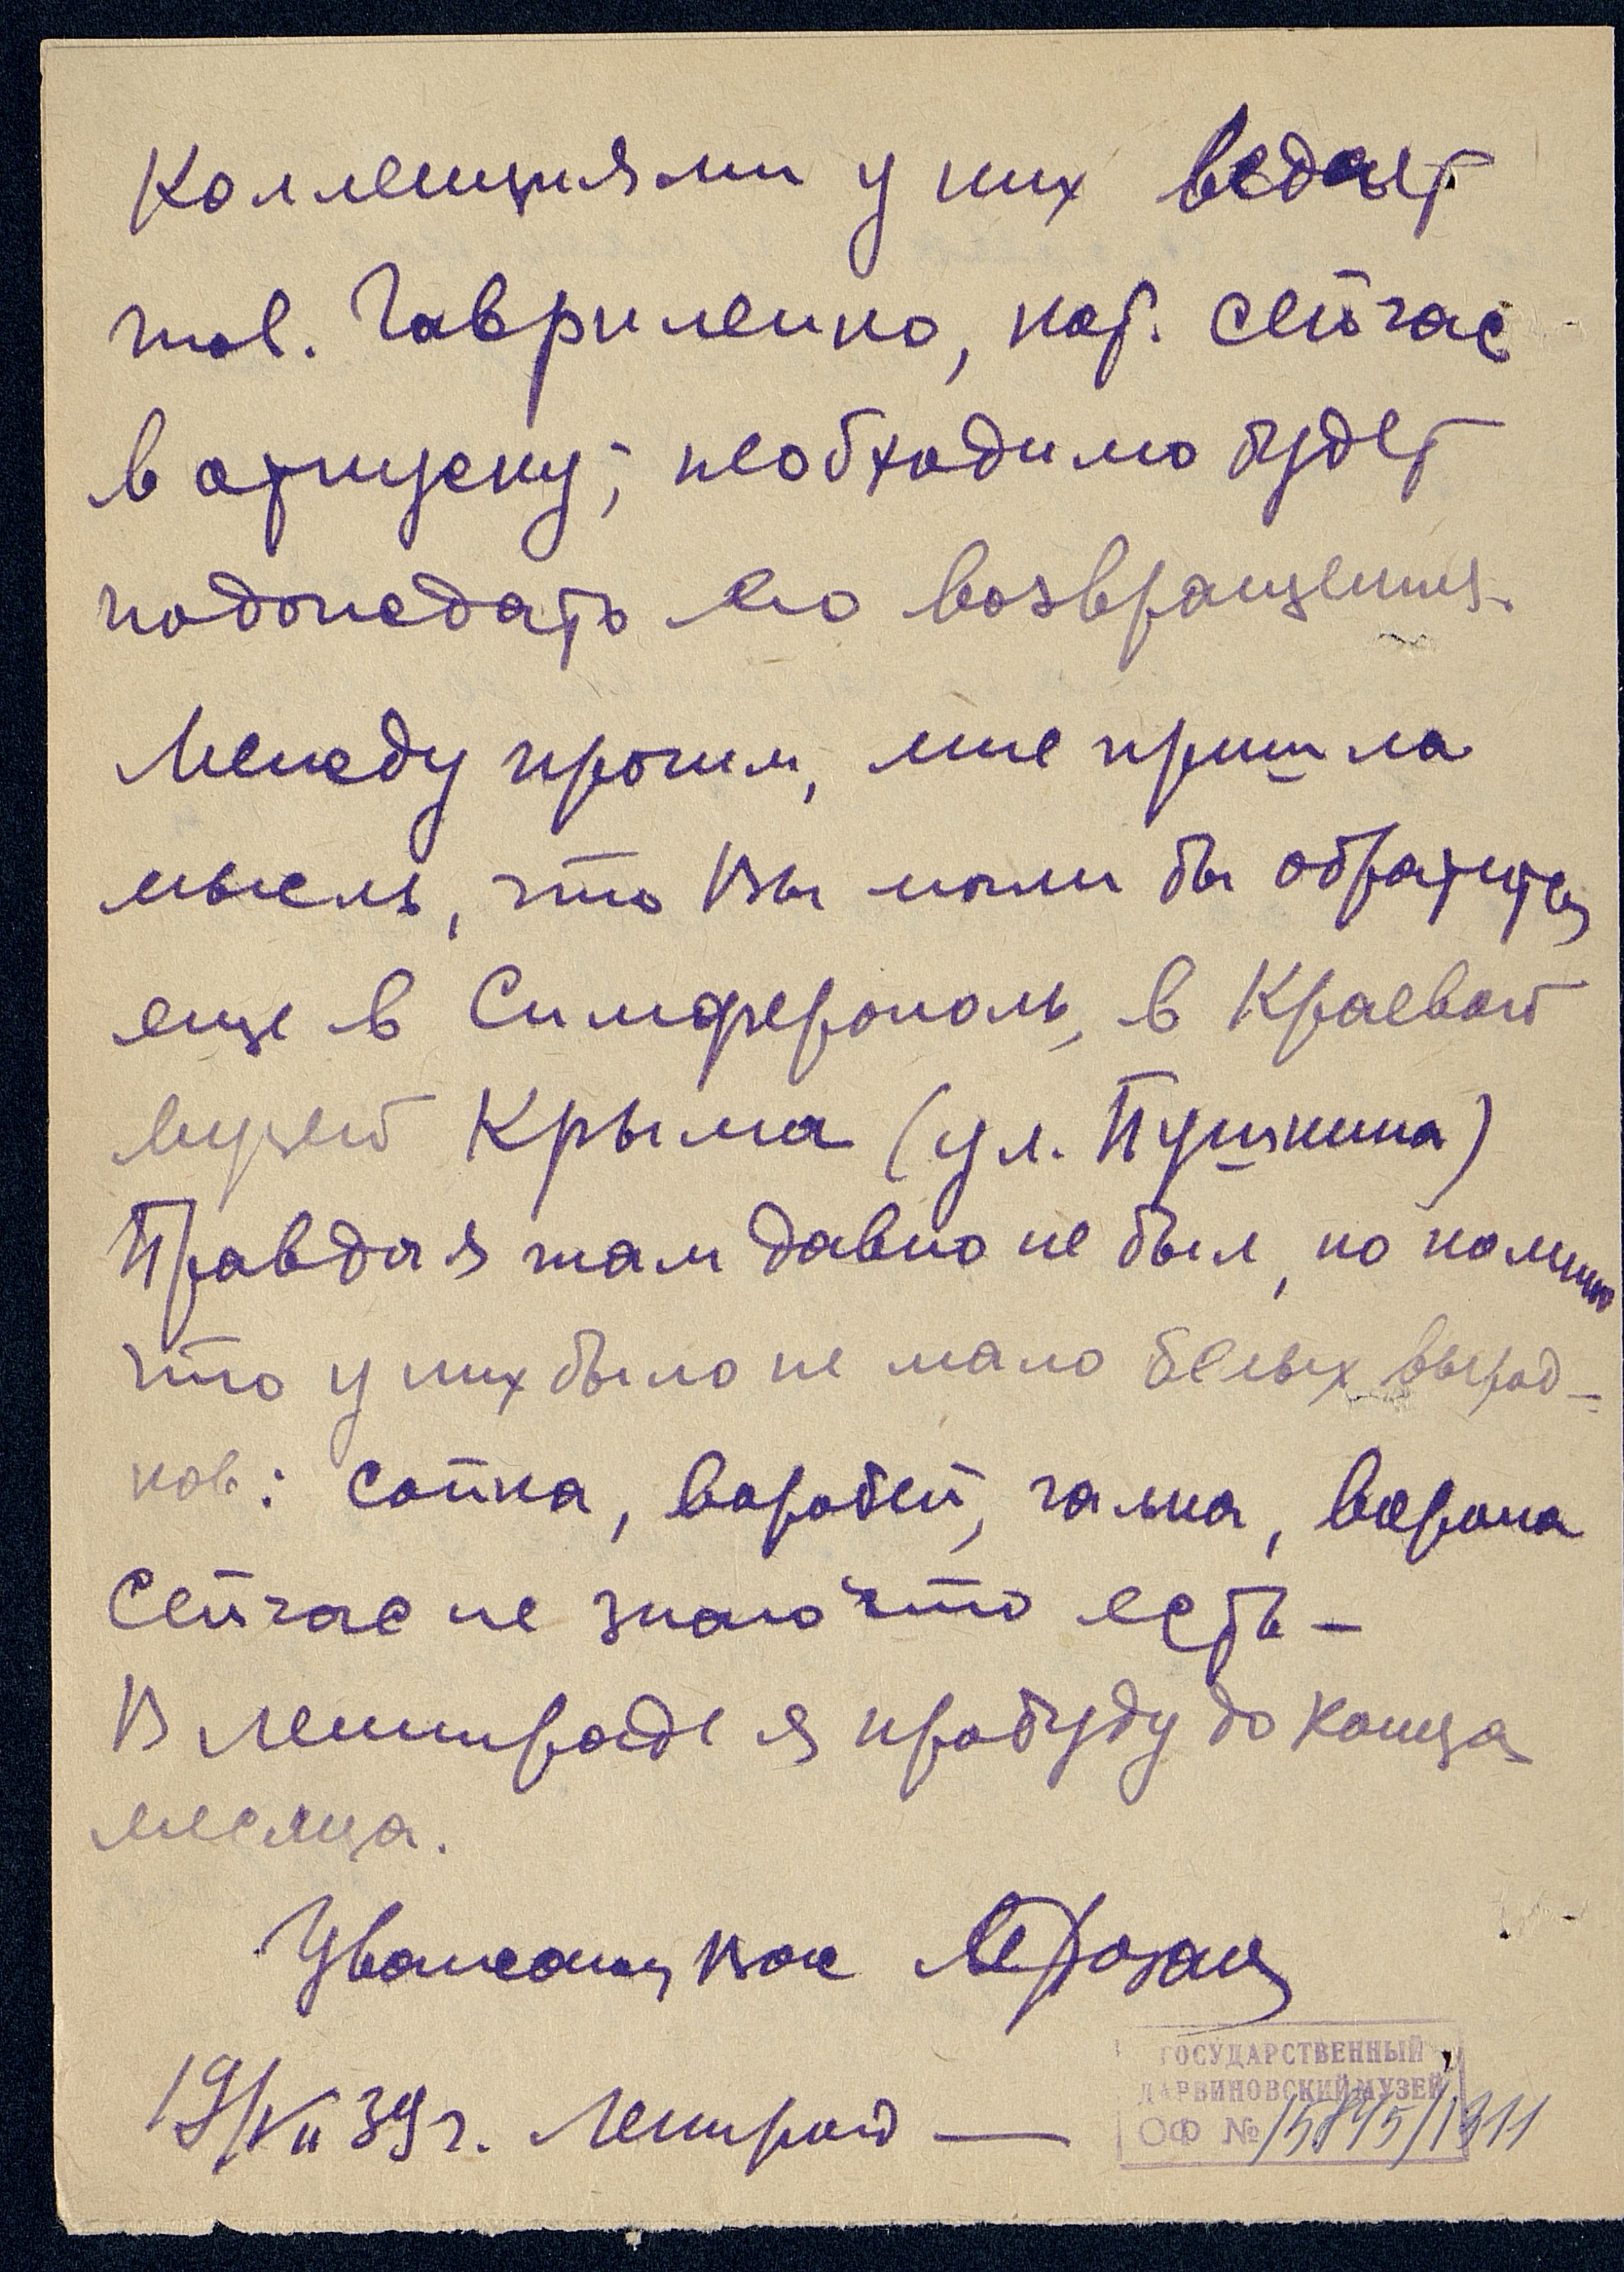 Коллекциями у них ведает
тов. Гавриленко, кот. сейчас
в отпуску; необходимо будет
подождать его возвращения.
Между прочим, мне пришла
мысль, что Вы могли бы обратиться
еще в Симферополь, в Краевой
музей Крыма (ул. Пушкина)
Правда я там давно не был, но помню
что у них было не мало белых вырод-
ков: сойка, воробей, галка, ворона
Сейчас не знаю что есть –
В Ленинграде я пробуду до конца
месяца.
Уважающий Вас
19/VII 39 г. Ленинград —
ГОСУДАРСТВЕННЫЙ
ДАРВИНОВСКИЙ МУЗЕЙ
ОФ № 15845/1311